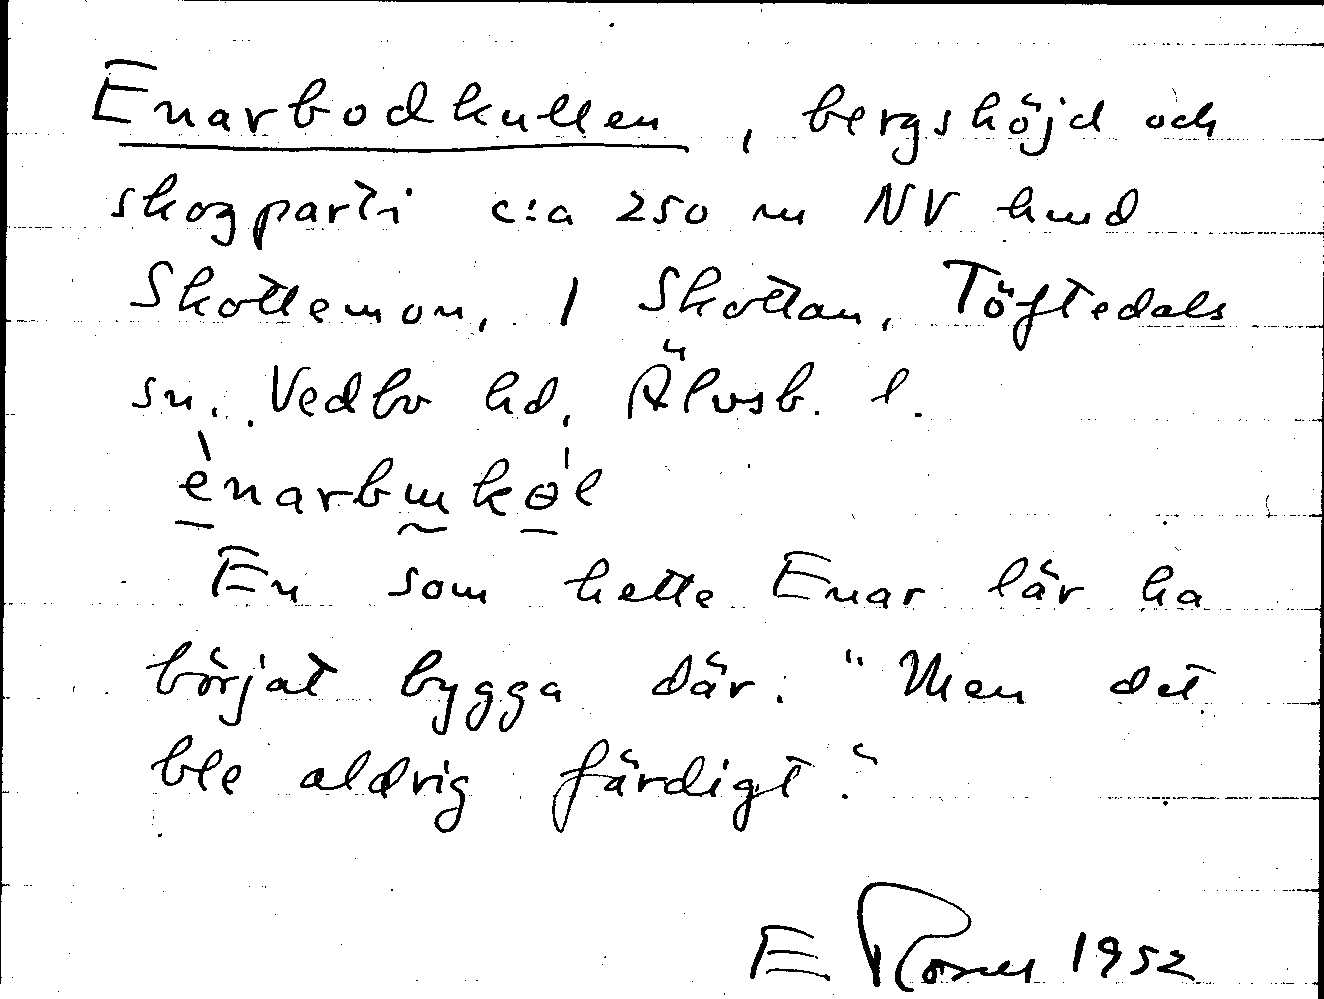 Enarbodkullen, bergshöjd och
skogparti c:a 250 m NV
Skottemon, 1 Skottan, Töftedals
sn. Vedbo hd, Älvsb. l.
En som hette Enar lär ha
börjat bygga där. "Men det
ble aldrig färdigt."
E 1952